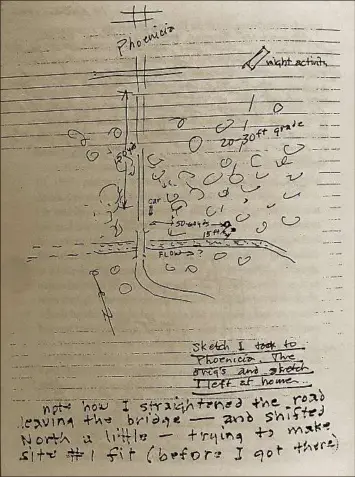 Phoenicia
night activity
20-30 ft grade
50 yd
car
50 yds
15 ft
FLOW → ?
Sketch I took to
Phoenicia. The
orig's and sketch
I left at home...
note how I straightened the road
leaving the bridge — and shifted
North a little — trying to make
site #1 fit (before I got there)